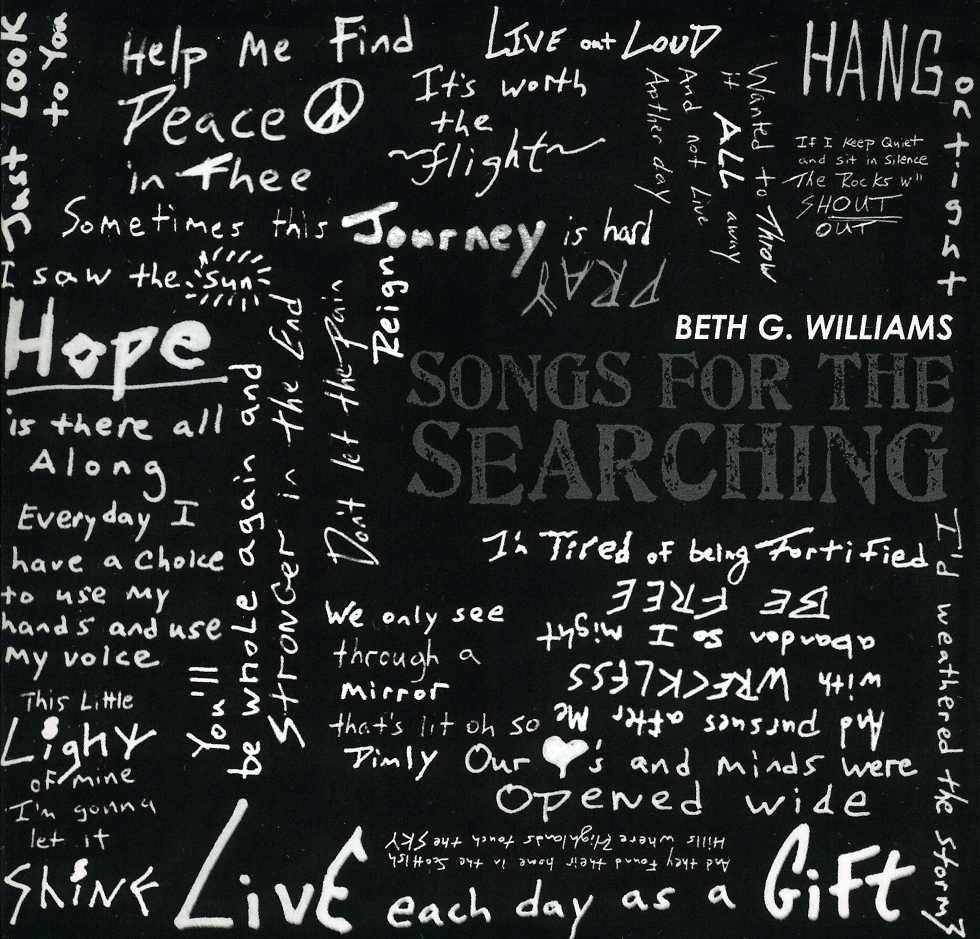 Just Look
to You
Help Me Find
Peace
in Thee
LIVE out LOUD
It's worth
the
~flight~
Wanted to Throw
it ALL away
And not Live
Another day
HANG
on tight
If I Keep Quiet
and sit in silence
The Rocks w"
SHOUT
OUT
Sometimes this Journey is hard
PRAY
I saw the sun
Hope
is there all
Along
Everyday I
have a choice
to use my
hands and use
my voice
This Little
Light
of mine
I'm gonna
let it
SHiNE
You'll
be whole again and
Stronger in the End
Don't let the Pain
Reign
BETH G. WILLIAMS
SONGS FOR THE
SEARCHING
I'm Tired of being Fortified
And pursues after Me
with WRECKLESS
abandon so I might
BE FREE
We only see
through a
mirror
that's lit oh so
Dimly
Our ❤'s and minds were
opened wide
I'd weathered the storm
And they Found their home in the Scottish
Hills where Highlands touch the SKY
LivE each day as a GiFt